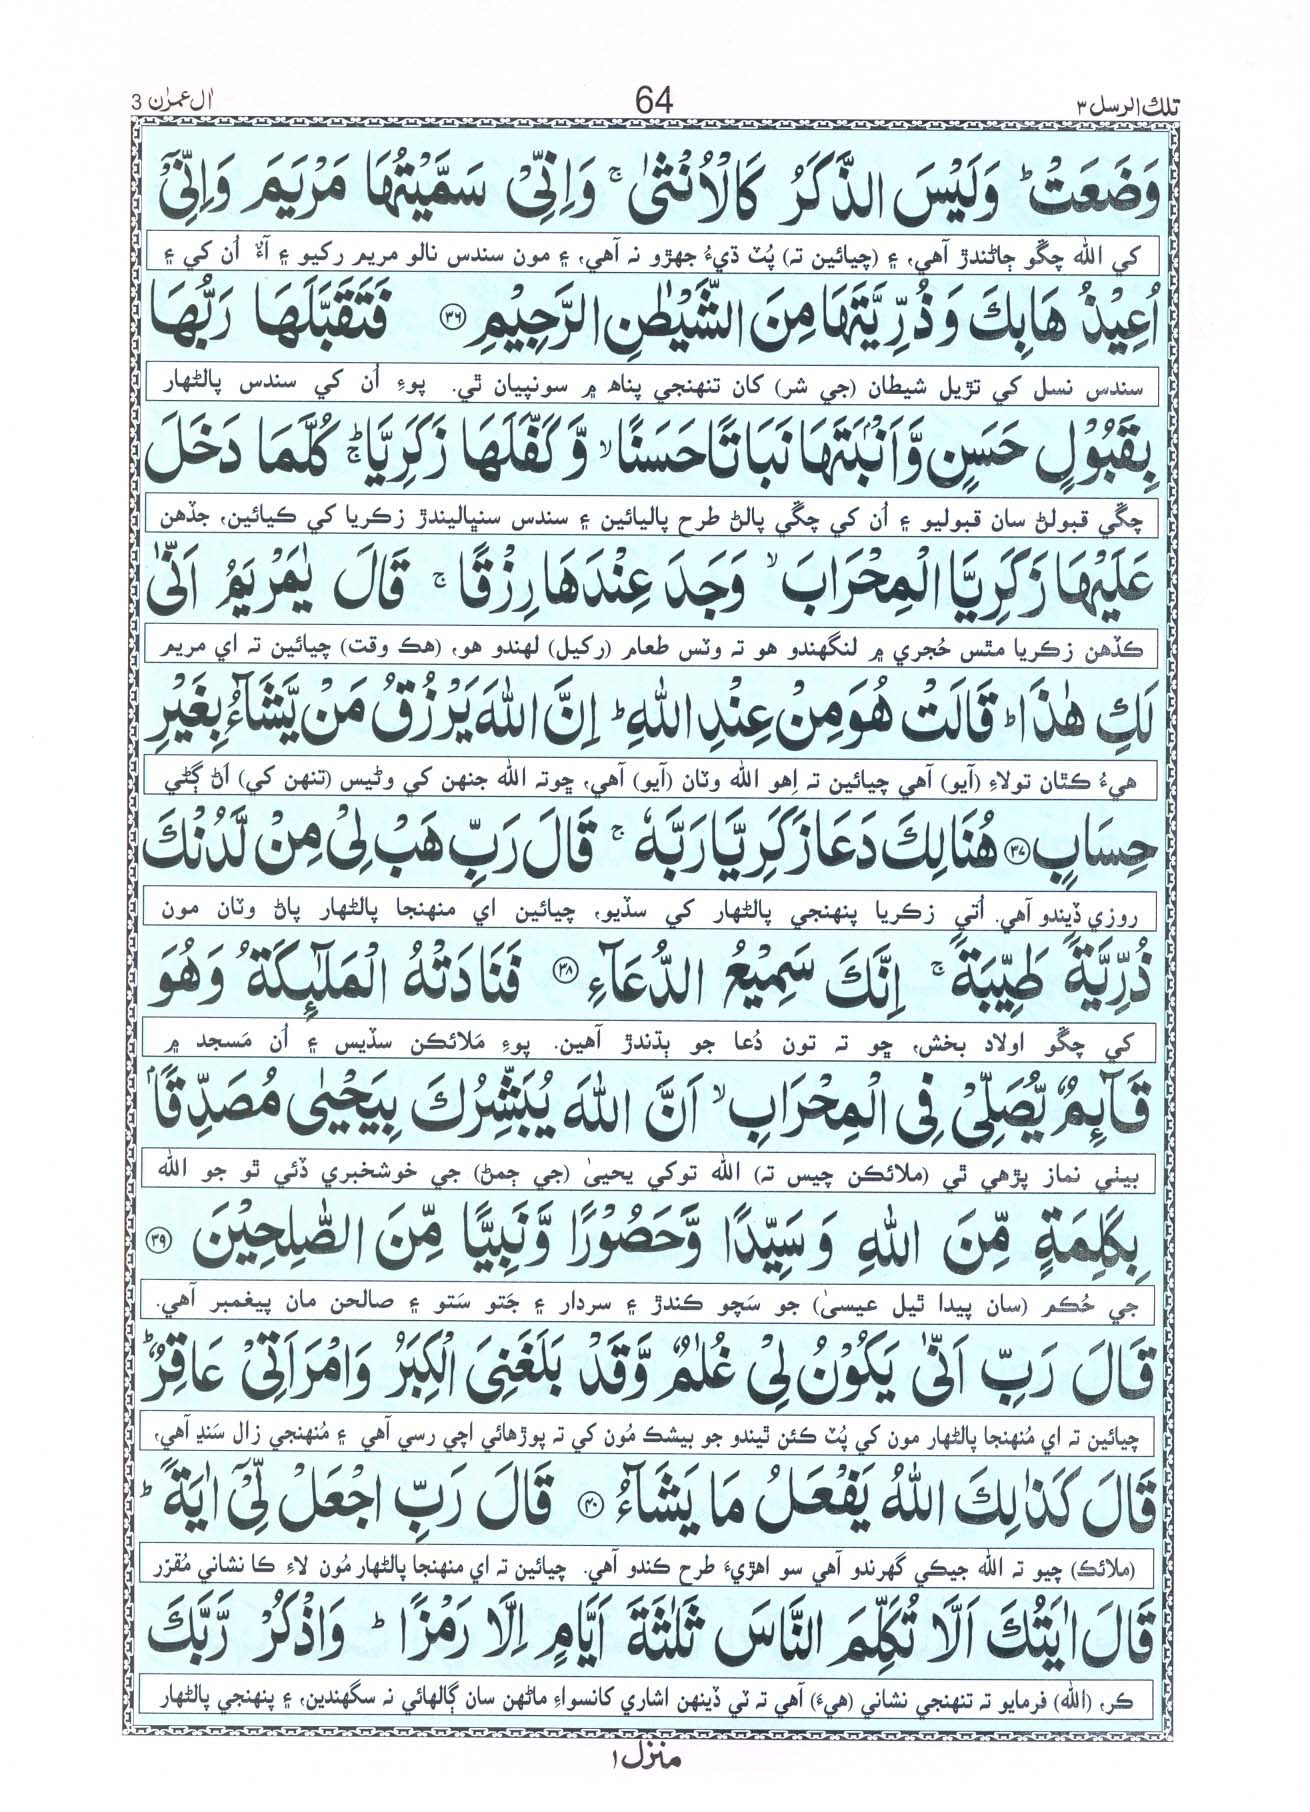 تلك الرسل ٣
64
اٰل عمرٰن 3
وَضَعَتْ ؕ وَلَيْسَ الذَّكَرُ كَالْاُنْثٰى ۚ وَاِنِّيْ سَمَّيْتُهَا مَرْيَمَ وَاِنِّيْٓ
کي الله چڱو ڄاڻندڙ آهي، ۽ (چيائين ته) پُٽ ڌيءُ جهڙو نہ آهي، ۽ مون سندس نالو مريم رکيو ۽ آءٌ اُن کي ۽
اُعِيْذُهَا بِكَ وَذُرِّيَّتَهَا مِنَ الشَّيْطٰنِ الرَّجِيْمِ ۝۳۶ فَتَقَبَّلَهَا رَبُّهَا
سندس نسل کي تڙيل شيطان (جي شر) کان تنهنجي پناه ۾ سونپيان ٿي. پوءِ اُن کي سندس پالڻهار
بِقَبُوْلٍ حَسَنٍ وَّاَنْۢبَتَهَا نَبَاتًا حَسَنًا ۙ وَّكَفَّلَهَا زَكَرِيَّا ۚؕ كُلَّمَا دَخَلَ
چڱي قبولڻ سان قبوليو ۽ اُن کي چڱي پالڻ طرح پاليائين ۽ سندس سنڀاليندڙ زڪريا کي ڪيائين، جڏهن
عَلَيْهَا زَكَرِيَّا الْمِحْرَابَ ۙ وَجَدَ عِنْدَهَا رِزْقًا ۚ قَالَ يٰمَرْيَمُ اَنّٰى
ڪڏهن زڪريا مٿس حُجري ۾ لنگهندو هو تہ وٽس طعام (رکيل) لهندو هو، (هڪ وقت) چيائين تہ اي مريم
لَكِ هٰذَا ؕ قَالَتْ هُوَ مِنْ عِنْدِ اللّٰهِ ؕ اِنَّ اللّٰهَ يَرْزُقُ مَنْ يَّشَآءُ بِغَيْرِ
هيءُ ڪٿان تولاءِ (آيو) آهي چيائين تہ اِهو الله وٽان (آيو) آهي، ڇوتہ الله جنهن کي وڻيس (تنهن کي) اَڻ ڳڻي
حِسَابٍ ۝۳۷ هُنَالِكَ دَعَا زَكَرِيَّا رَبَّهٗ ۚ قَالَ رَبِّ هَبْ لِيْ مِنْ لَّدُنْكَ
روزي ڏيندو آهي. اُتي زڪريا پنهنجي پالڻهار کي سڏيو، چيائين اي منهنجا پالڻهار پاڻ وٽان مون
ذُرِّيَّةً طَيِّبَةً ۚ اِنَّكَ سَمِيْعُ الدُّعَآءِ ۝۳۸ فَنَادَتْهُ الْمَلٰٓئِكَةُ وَهُوَ
کي چڱو اولاد بخش، ڇو تہ تون دُعا جو ٻڌندڙ آهين. پوءِ مَلائڪن سڏيس ۽ اُن مَسجد ۾
قَآئِمٌ يُّصَلِّيْ فِي الْمِحْرَابِ ۙ اَنَّ اللّٰهَ يُبَشِّرُكَ بِيَحْيٰى مُصَدِّقًاۢ
بيٺي نماز پڙهي ٿي (ملائڪن چيس تہ) الله توکي يحييٰ (جي ڄمڻ) جي خوشخبري ڏئي ٿو جو الله
بِكَلِمَةٍ مِّنَ اللّٰهِ وَسَيِّدًا وَّحَصُوْرًا وَّنَبِيًّا مِّنَ الصّٰلِحِيْنَ ۝۳۹
جي حُڪم (سان پيدا ٿيل عيسىٰ) جو سَچو ڪندڙ ۽ سردار ۽ جَتو سَتو ۽ صالحن مان پيغمبر آهي.
قَالَ رَبِّ اَنّٰى يَكُوْنُ لِيْ غُلٰمٌ وَّقَدْ بَلَغَنِيَ الْكِبَرُ وَامْرَاَتِيْ عَاقِرٌ ؕ
چيائين تہ اي مُنهنجا پالڻهار مون کي پُٽ ڪئن ٿيندو جو بيشڪ مُون کي تہ پوڙهائي اچي رسي آهي ۽ مُنهنجي زال سَنڍ آهي،
قَالَ كَذٰلِكَ اللّٰهُ يَفْعَلُ مَا يَشَآءُ ۝۴۰ قَالَ رَبِّ اجْعَلْ لِّيْٓ اٰيَةً ؕ
(ملائڪ) چيو تہ الله جيڪي گهرندو آهي سو اهڙيءَ طرح ڪندو آهي. چيائين تہ اي منهنجا پالڻهار مُون لاءِ ڪا نشاني مُقرّر
قَالَ اٰيَتُكَ اَلَّا تُكَلِّمَ النَّاسَ ثَلٰثَةَ اَيَّامٍ اِلَّا رَمْزًا ؕ وَاذْكُرْ رَّبَّكَ
ڪر، (الله) فرمايو تہ تنهنجي نشاني (هيءَ) آهي تہ ٽي ڏينهن اشاري کانسواءِ ماڻهن سان ڳالهائي نہ سگهندين، ۽ پنهنجي پالڻهار
منزل ۱